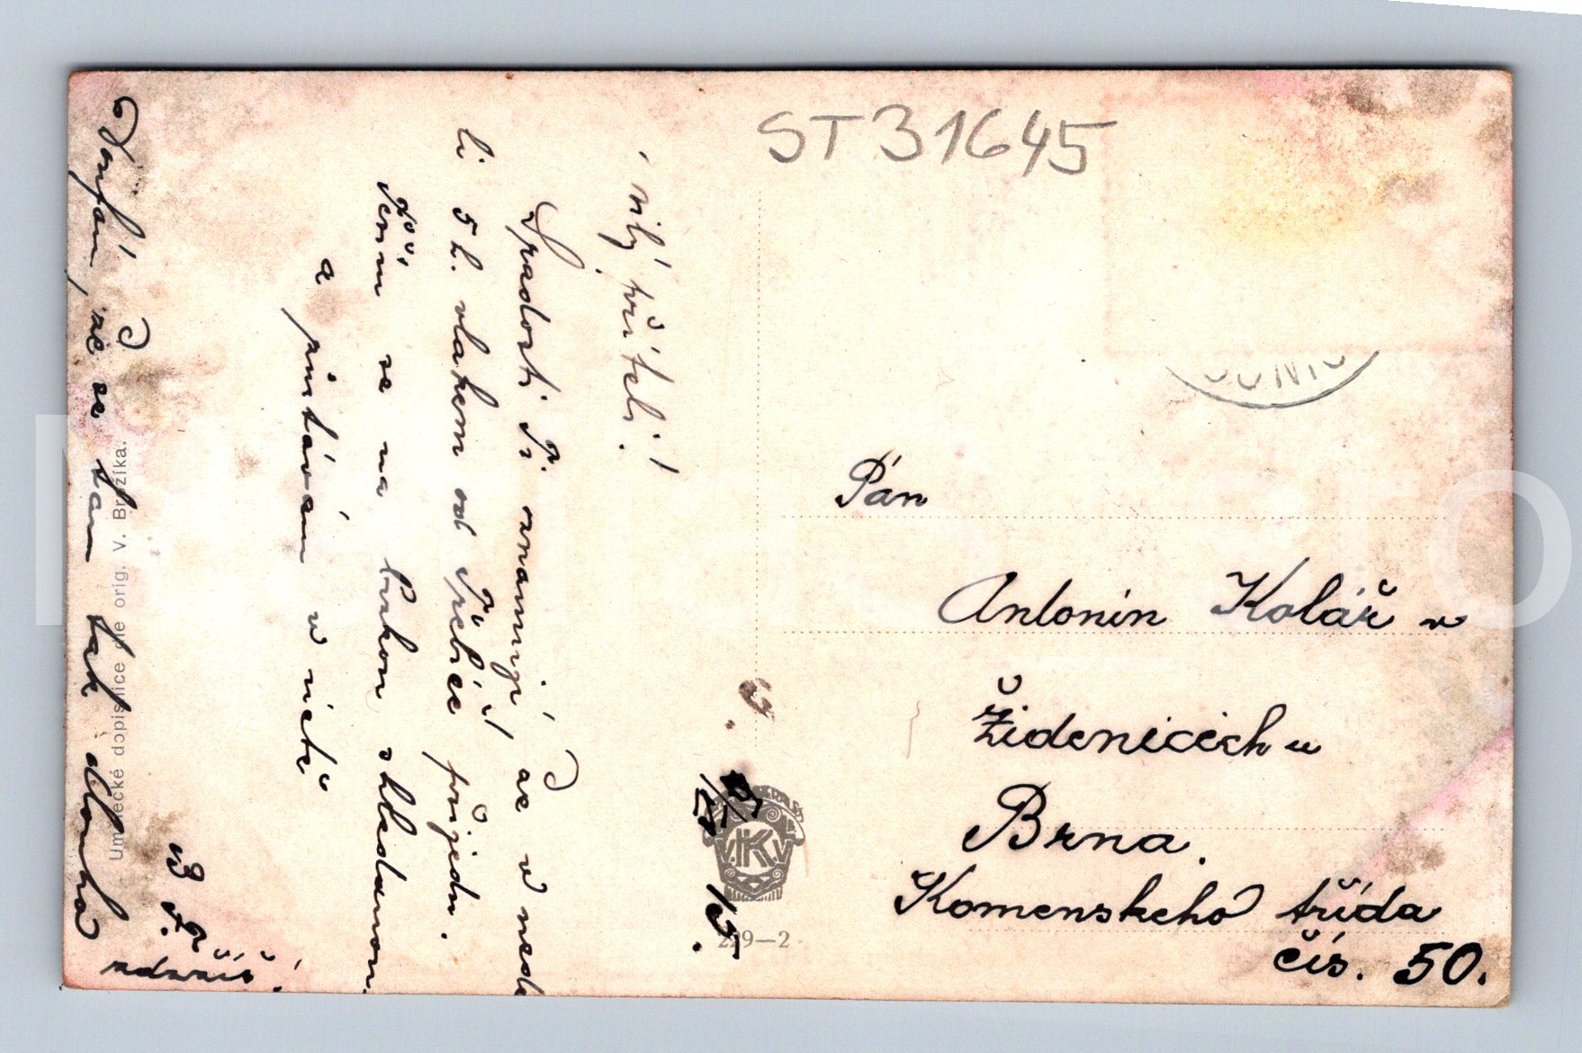 ST31645
milý příteli!
S radostí Ti oznamuji, že v neděli
5 h. vlakem od Třebíče přijedu.
Těším se na
a zůstávám v úctě
Doufám, že se tam tak dlouho
nezdržíš!
Pán
Antonín Kolář v
Židenicích u
Brna.
Komenského třída
čís. 50.
V.K.V.
229—2
Umělecké dopisnice dle orig. V. Brožíka.